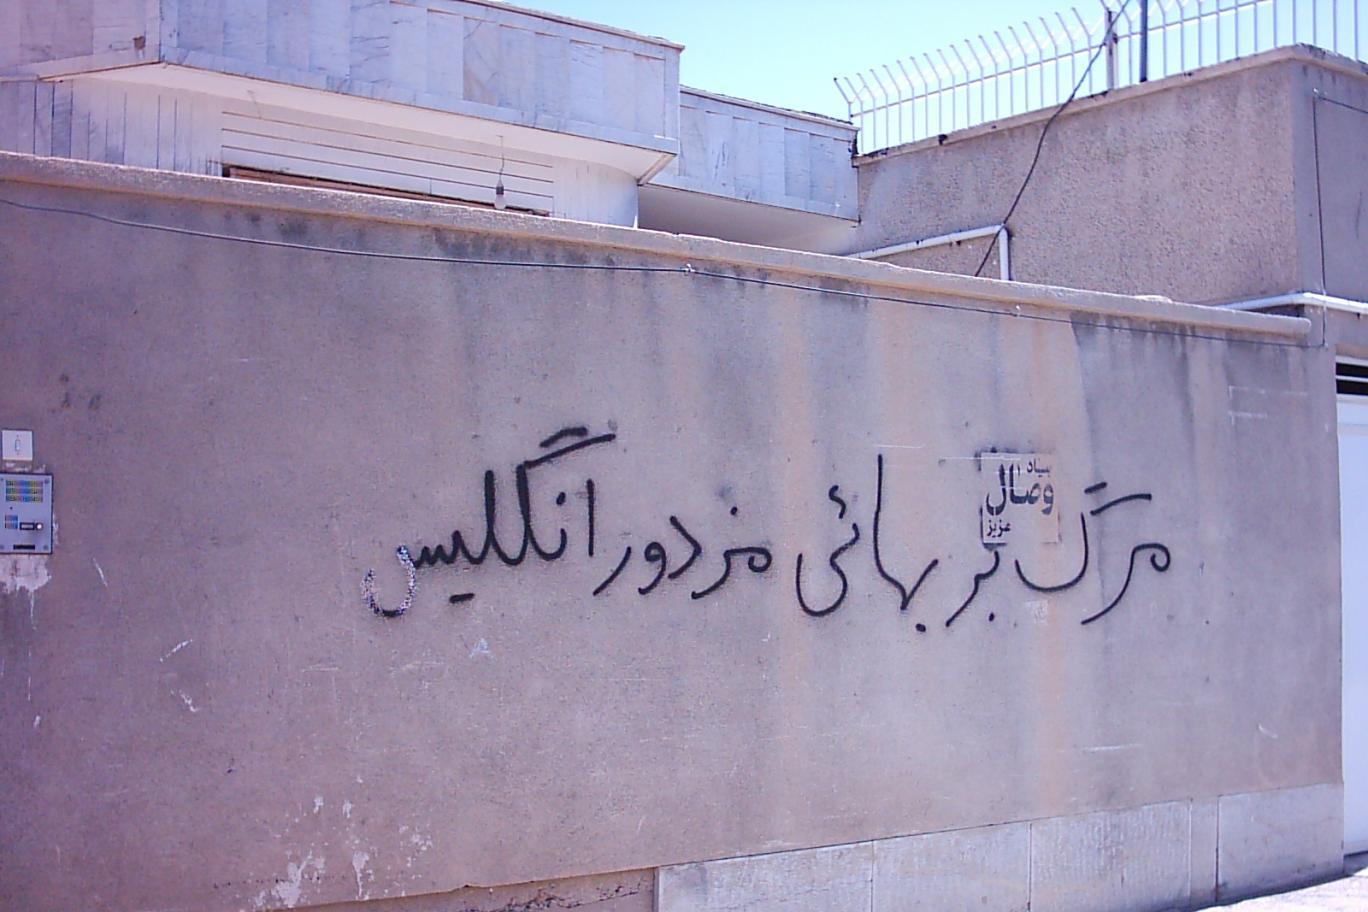 مرگ بر بهائی مزدور انگلیس
وصال
عزیز